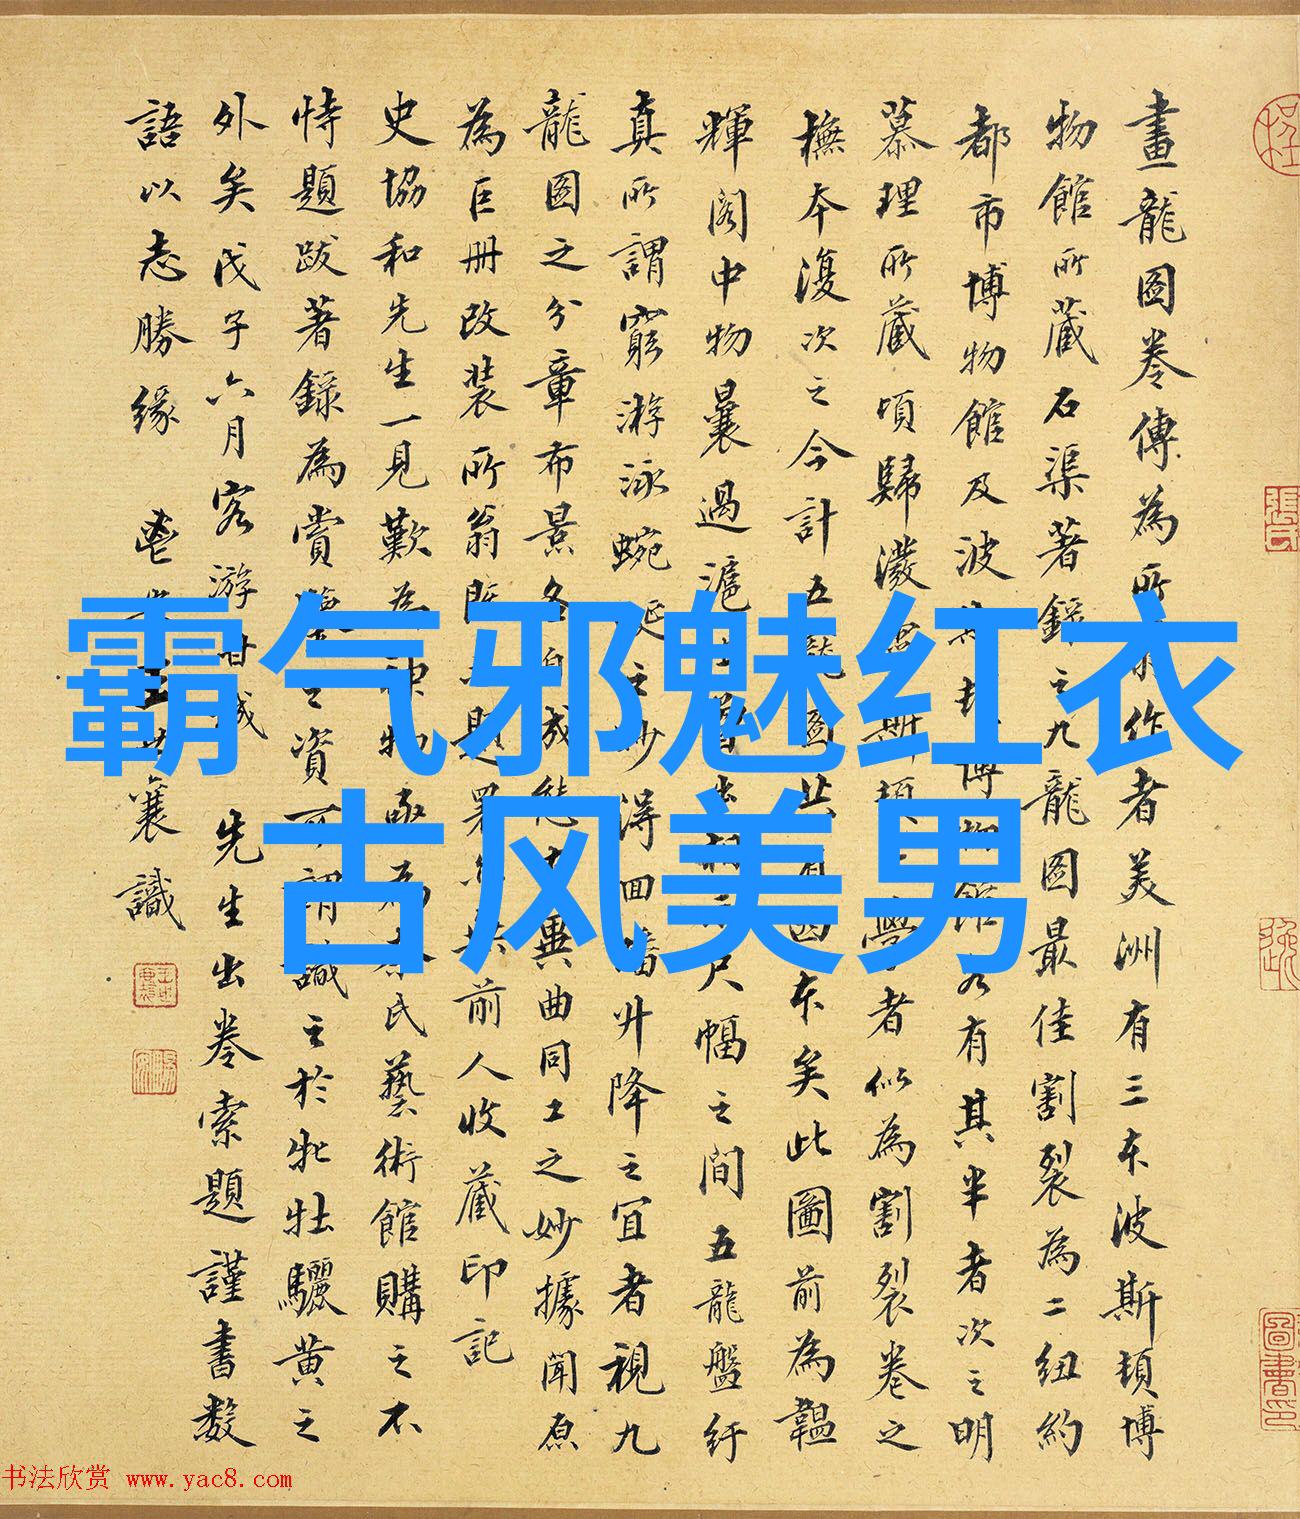 霸气邪魅红衣
古风美男
畫龍圖卷傳為所
作者美洲有三本波斯頓博
物館所藏石渠著錄之九龍圖最佳割裂為二紐約
都市博物館及波
博物館各有其半者次之明
慕理所藏頃歸瀲
斯頓
學者似為割裂卷之
橅本復次之今計五龍圖共有四本矣此圖前為韞
輝閣中物曩過滬
尺幅之間五龍盤紆
真所謂窮游泳蜿蜒之妙得回蟠升降之宜者視九
龍圖之分章布景各自成
異曲同工之妙據聞原
為巨冊改裝所翁
題署
前人收藏印記
史協和先生一見歎為神物
氏藝術館購之不
恃題跋著錄為賞鑒之資可謂識之於牝牡驪黃之
外矣戊子六月客游甘
先生出卷索題謹書數
語以志勝緣
襄識
书法欣赏 www.yac8.com